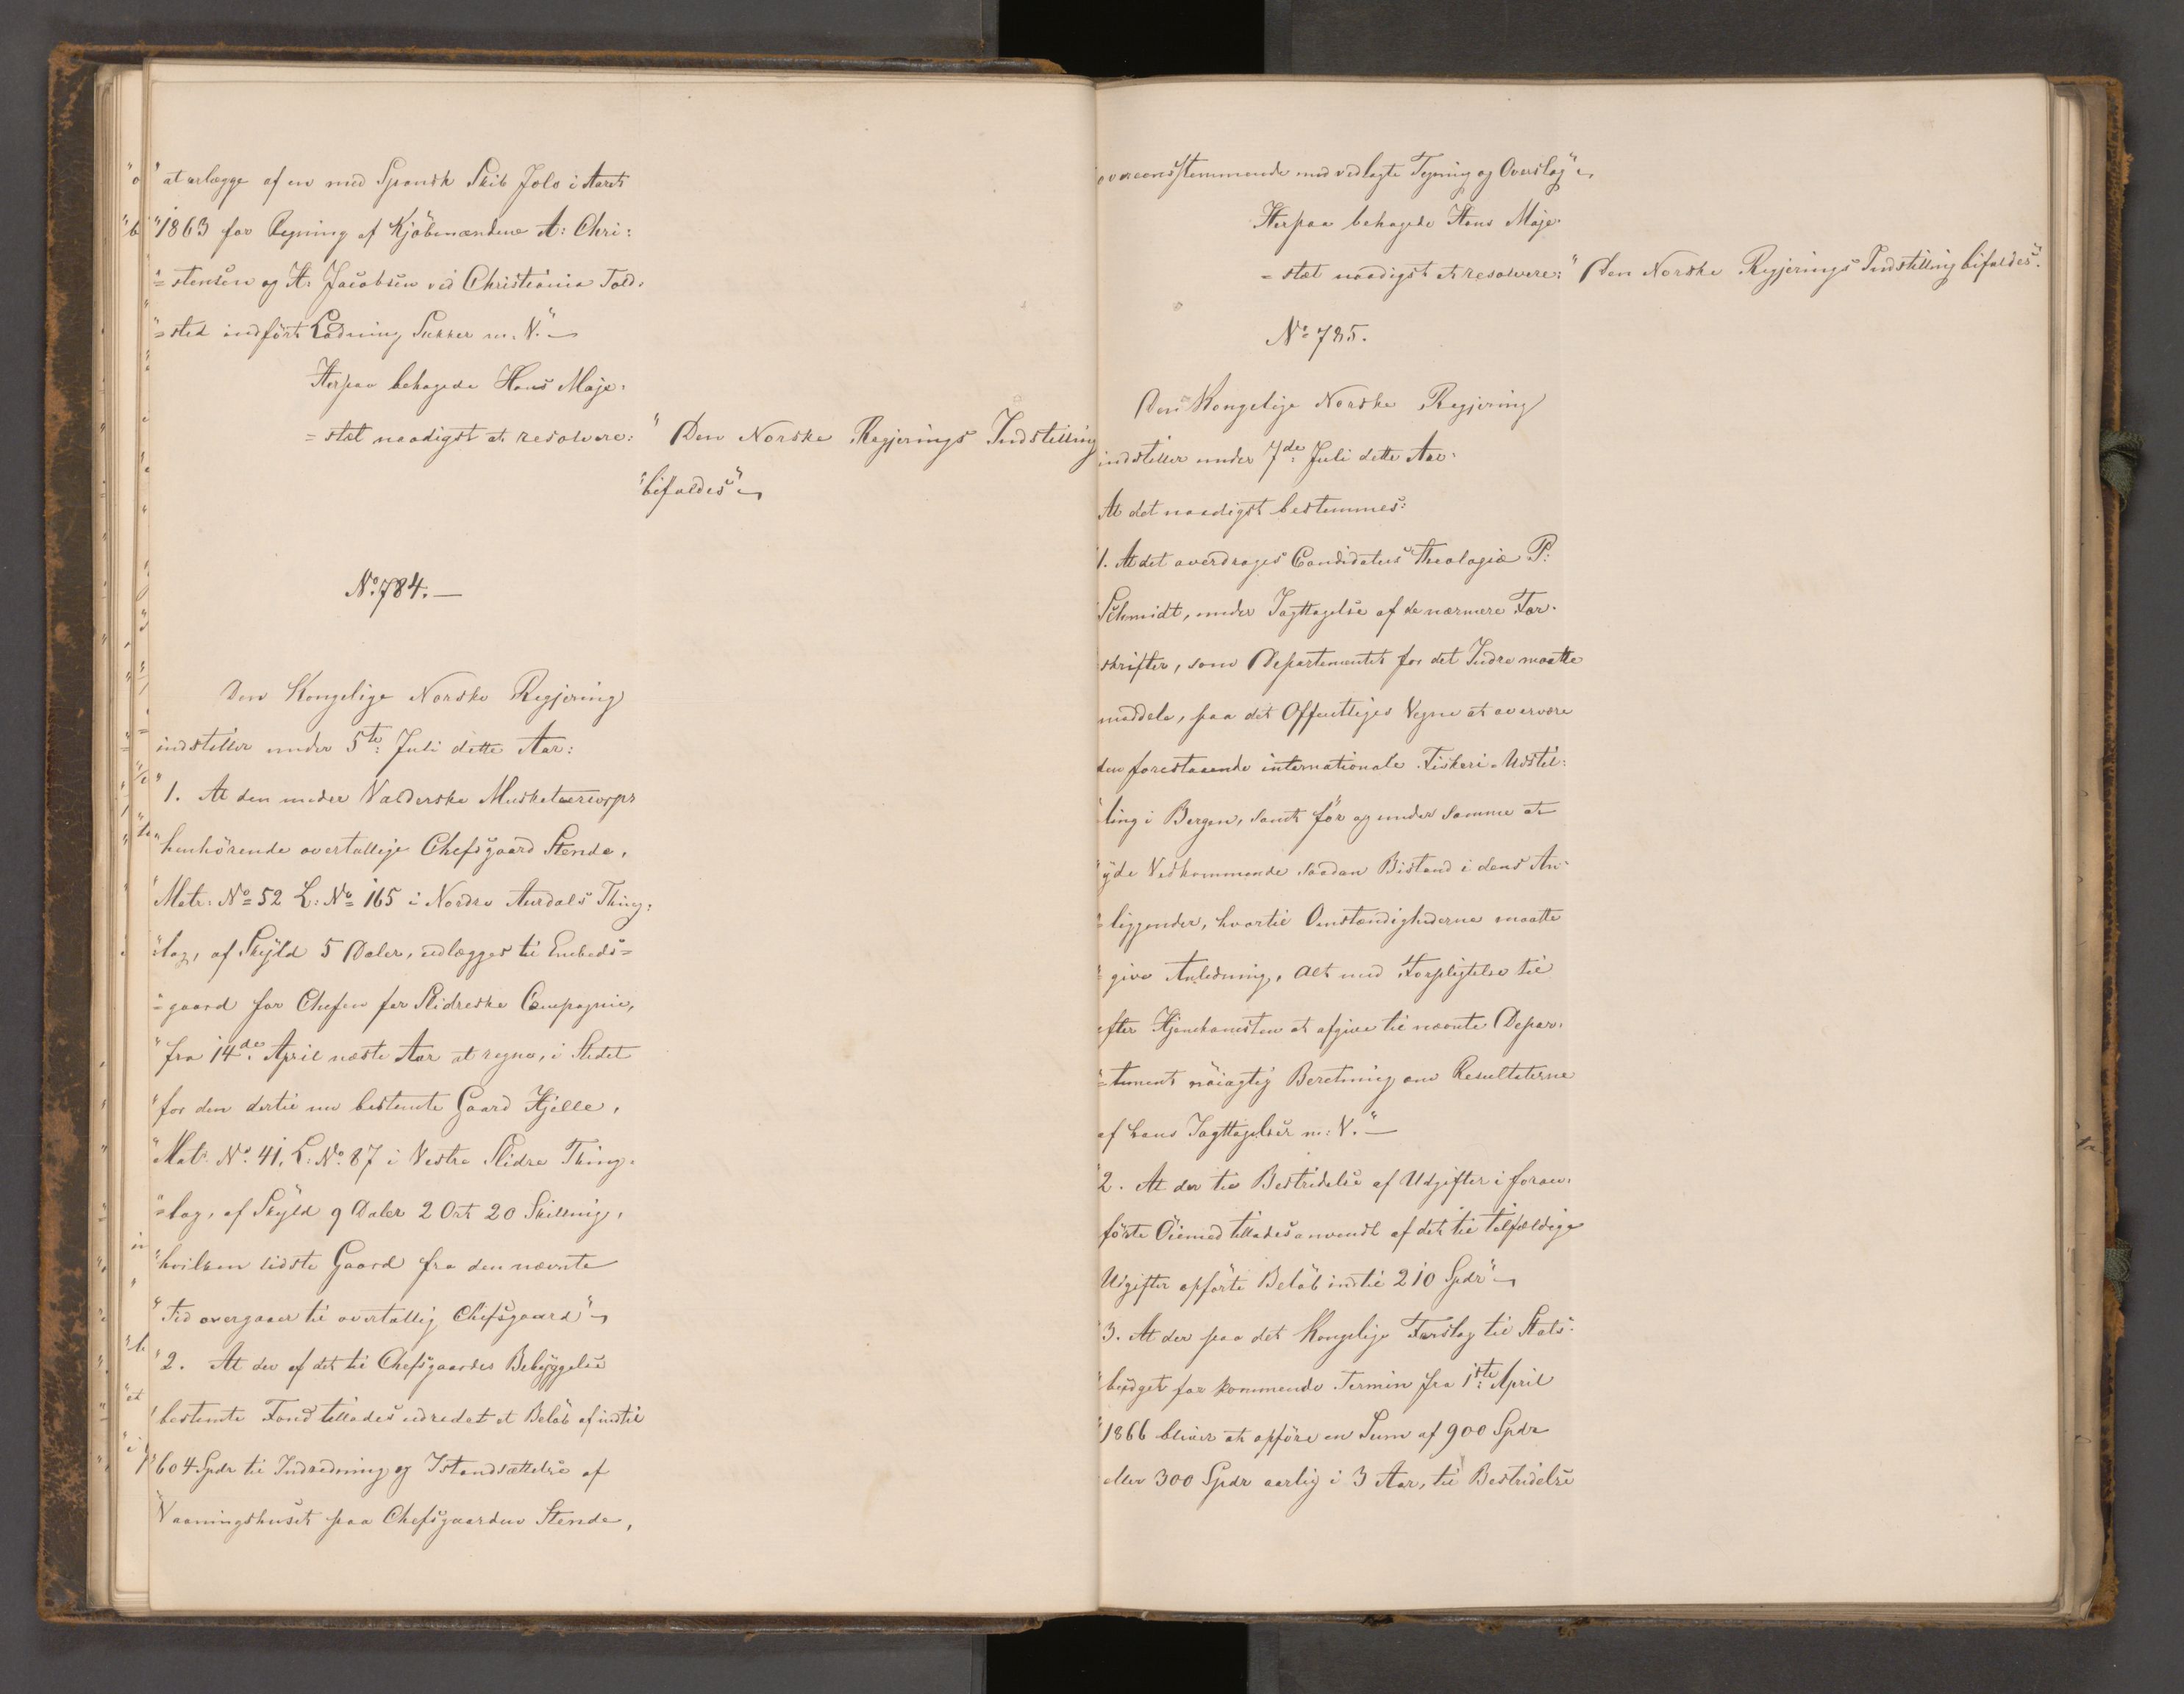 "at erlægge af en med Spansk Skib Jolo i Aaret
"1863 for Regning af Kjöbmændene A: Chri:
"=stensen og H. Jacobsen ved Christiania Told=
"=sted indfört Ladning Sukker m. V."—
Herpaa behagede Hans Maje=
=stæt naadigst at resolvere: "Den Norske Regjerings Indstilling
"bifaldes"
No. 784.—
Den Kongelige Norske Regjering
indstiller under 5te: Juli dette Aar:
"1. At den under Valderske Musketeercorps
"henhörende overtallige Chefsgaard Stende,
"Matr: No= 52 L: No= 165 i Nordre Aurdals Thing=
"=lag, af Skyld 5 Daler, udlægges til Embeds=
"=gaard for Chefen for Slidreske Compagnie,
"fra 14de: April næste Aar at regne, i Stedet
"for den dertil nu bestemte Gaard Hjelle,
"Matr. No. 41, L: No. 87 i Vestre Slidre Thing=
"=lag, af Skyld 9 Daler 2 Ort 20 Skilling,
"hvilken sidste Gaard fra den nævnte
"Tid overgaaer til overtallig Chefsgaard"
"2. At der af det til Chefsgaardes Bebyggelse
"bestemte Fond tillades udredet et Belöb af indtil
"604 Spdr til Indredning og Istandsættelse af
"Vaaningshuset paa Chefsgaarden Stende,
overeensstemmende med vedlagte Tegning og Overslag"
Herpaa behagede Hans Maje=
=stæt naadigst at resolvere: "Den Norske Regjerings Indstilling bifaldes".
No= 785.
Den Kongelige Norske Regjering
indstiller under 7de: Juli dette Aar:
At det naadigst bestemmes:
1. At det overdrages Candidatus Theologiæ P:
Schmidt, under Iagttagelse af de nærmere For=
skrifter, som Departementet for det Indre maatte
meddele, paa det Offentliges Vegne at overvære
den forestaaende internationale Fiskeri-Udstil=
ling i Bergen, samt för og under samme at
yde Vedkommende saadan Bistand i dens An=
=liggender, hvortil Omstændighederne maatte
=give Anledning, Alt med Forpligtelse til
efter Hjemkomsten at afgive til nævnte Depar=
=tement nöiagtig Beretning om Resultaterne
af hans Iagttagelser m: V."—
2. At der til Bestridelse af Udgifter i foran=
förte Öiemed tillades anvendt af det til tilfældige
Udgifter opförte Belöb indtil 210 Spdr"
3. At der paa det Kongelige Forslag til Stats=
"budget for kommende Termin fra 1ste: April
"1866 bliver at opföre en Sum af 900 Spdr
eller 300 Spdr aarlig i 3 Aar, til Bestridelse